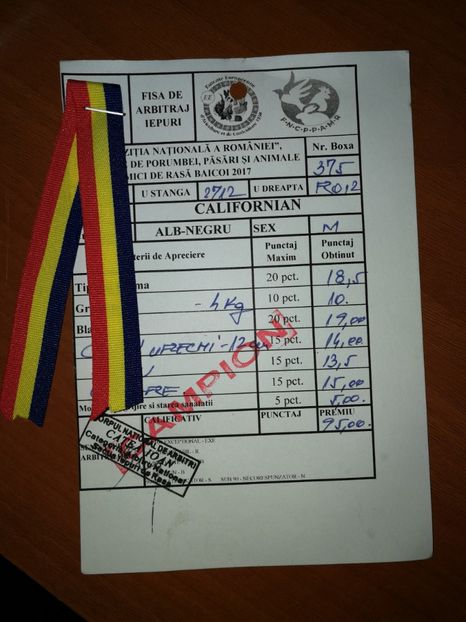 FISA DE
ARBITRAJ
IEPURI
Entente Européenne
F-N-C-P-P-A-M-R
ZIȚIA NAȚIONALĂ A ROMÂNIEI",
DE PORUMBEI, PĂSĂRI ȘI ANIMALE
MICI DE RASĂ BAICOI 2017
Nr. Boxa
375
U STANGA 2712 U DREAPTA RO12
CALIFORNIAN
ALB-NEGRU SEX M
terii de Apreciere Punctaj Maxim Punctaj Obtinut
Tip ma 20 pct. 18,5
Gr - 4kg 10 pct. 10.
Bla 20 pct. 19,00
URECHI-12 15 pct. 14,00
15 pct. 13,5
RE 15 pct. 15,00
Mo jire si starea sanatatii 5 pct. 5,00
CALIFICATIV PUNCTAJ PREMIU
95,00
AMPION
EXCEPTIONAL - EXE
ARBITR
CORPUL NATIONAL DE ARBITRI
IOAN
SUB 90 - NECORESPUNZATOR - N